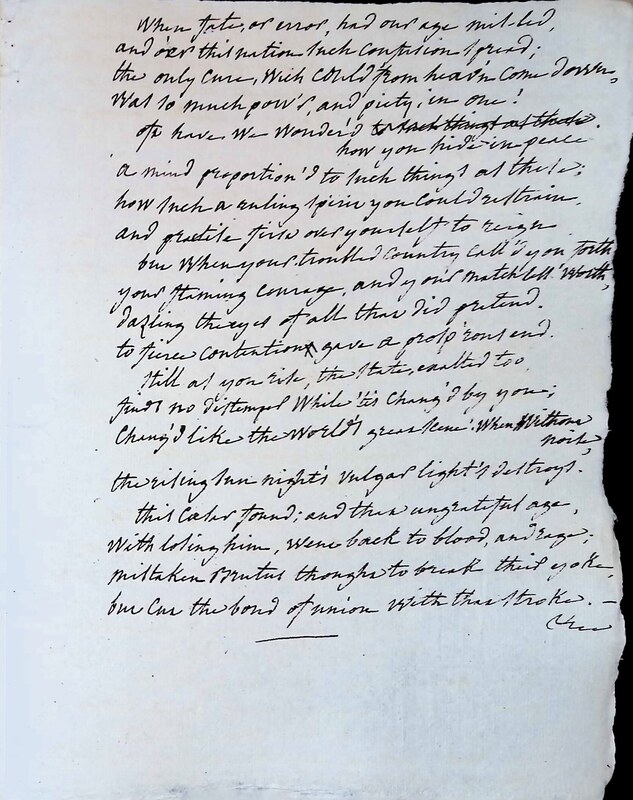 When fate, or error, had our age mis-led,
and o'er this nation such confusion spread;
the only cure, wich could from heav'n come down,
was so much pow'r, and piety, in one!
oft have we wonder'd to such things as these.
how you hide in peace
a mind proportion'd to such things as these;
how such a ruling spirit you could restrain,
and practise first over yourself to reign
but when your troubled country call'd you forth
your flaming courage, and your matchless worth,
dazling the eyes of all that did pretend.
to fierce contention gave a prosp'rous end.
still as you rise, the state, exalted too,
finds no distemper while 'tis chang'd by you;
chang'd like the world's great scene! when without
noise,
the rising sun night's vulgar light's destroys.
this Cæsar found; and that ungrateful age,
with losing him, went back to blood, and rage;
mistaken Brutus thought to break their yoke,
but cut the bond of union with that stroke. –